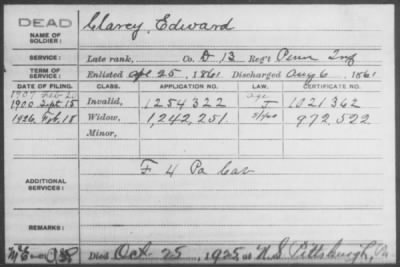 DEAD
NAME OF SOLDIER:
Clarey, Edward
SERVICE:
Late rank, Co. D 13 Reg't Penn Inf
TERM OF SERVICE:
Enlisted Apl. 25, 1861 Discharged Aug 6, 1861
DATE OF FILING. CLASS. APPLICATION NO. LAW. CERTIFICATE NO.
1907 Feb 2
1900 Sept. 15 Invalid, 1254322 Age J 1021362
1926, Feb. 18 Widow, 1,242,251 972,522
Minor,
ADDITIONAL SERVICES:
F 4 Pa Cav
REMARKS:
Died Oct 25, 1925 at N.S. Pittsburgh, Pa